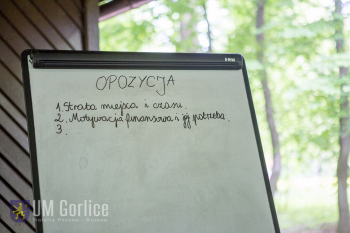 OPOZYCJA
1. Strata miejsca i czasu.
2. Motywacja finansowa i jej potrzeba.
3.
UM Gorlice